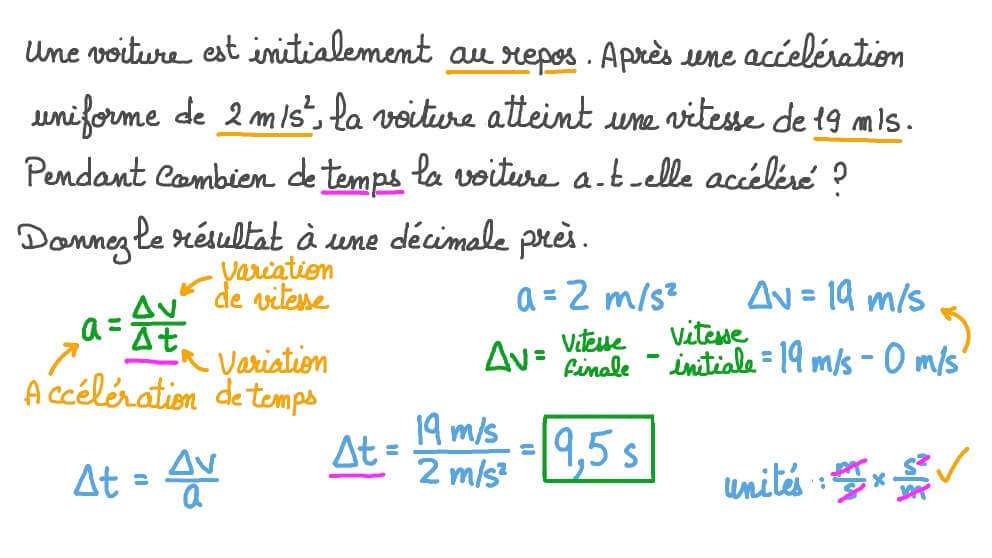 Une voiture est initialement au repos. Après une accélération
uniforme de 2 m/s², la voiture atteint une vitesse de 19 m/s.
Pendant combien de temps la voiture a-t-elle accéléré ?
Donnez le résultat à une décimale près.
a = Δv / Δt
Variation
de vitesse
Variation
de temps
Accélération
a = 2 m/s² Δv = 19 m/s
Δv = Vitesse finale - Vitesse initiale = 19 m/s - 0 m/s
Δt = Δv / a
Δt = 19 m/s / 2 m/s² = 9,5 s
unités : m/s × s²/m ✓